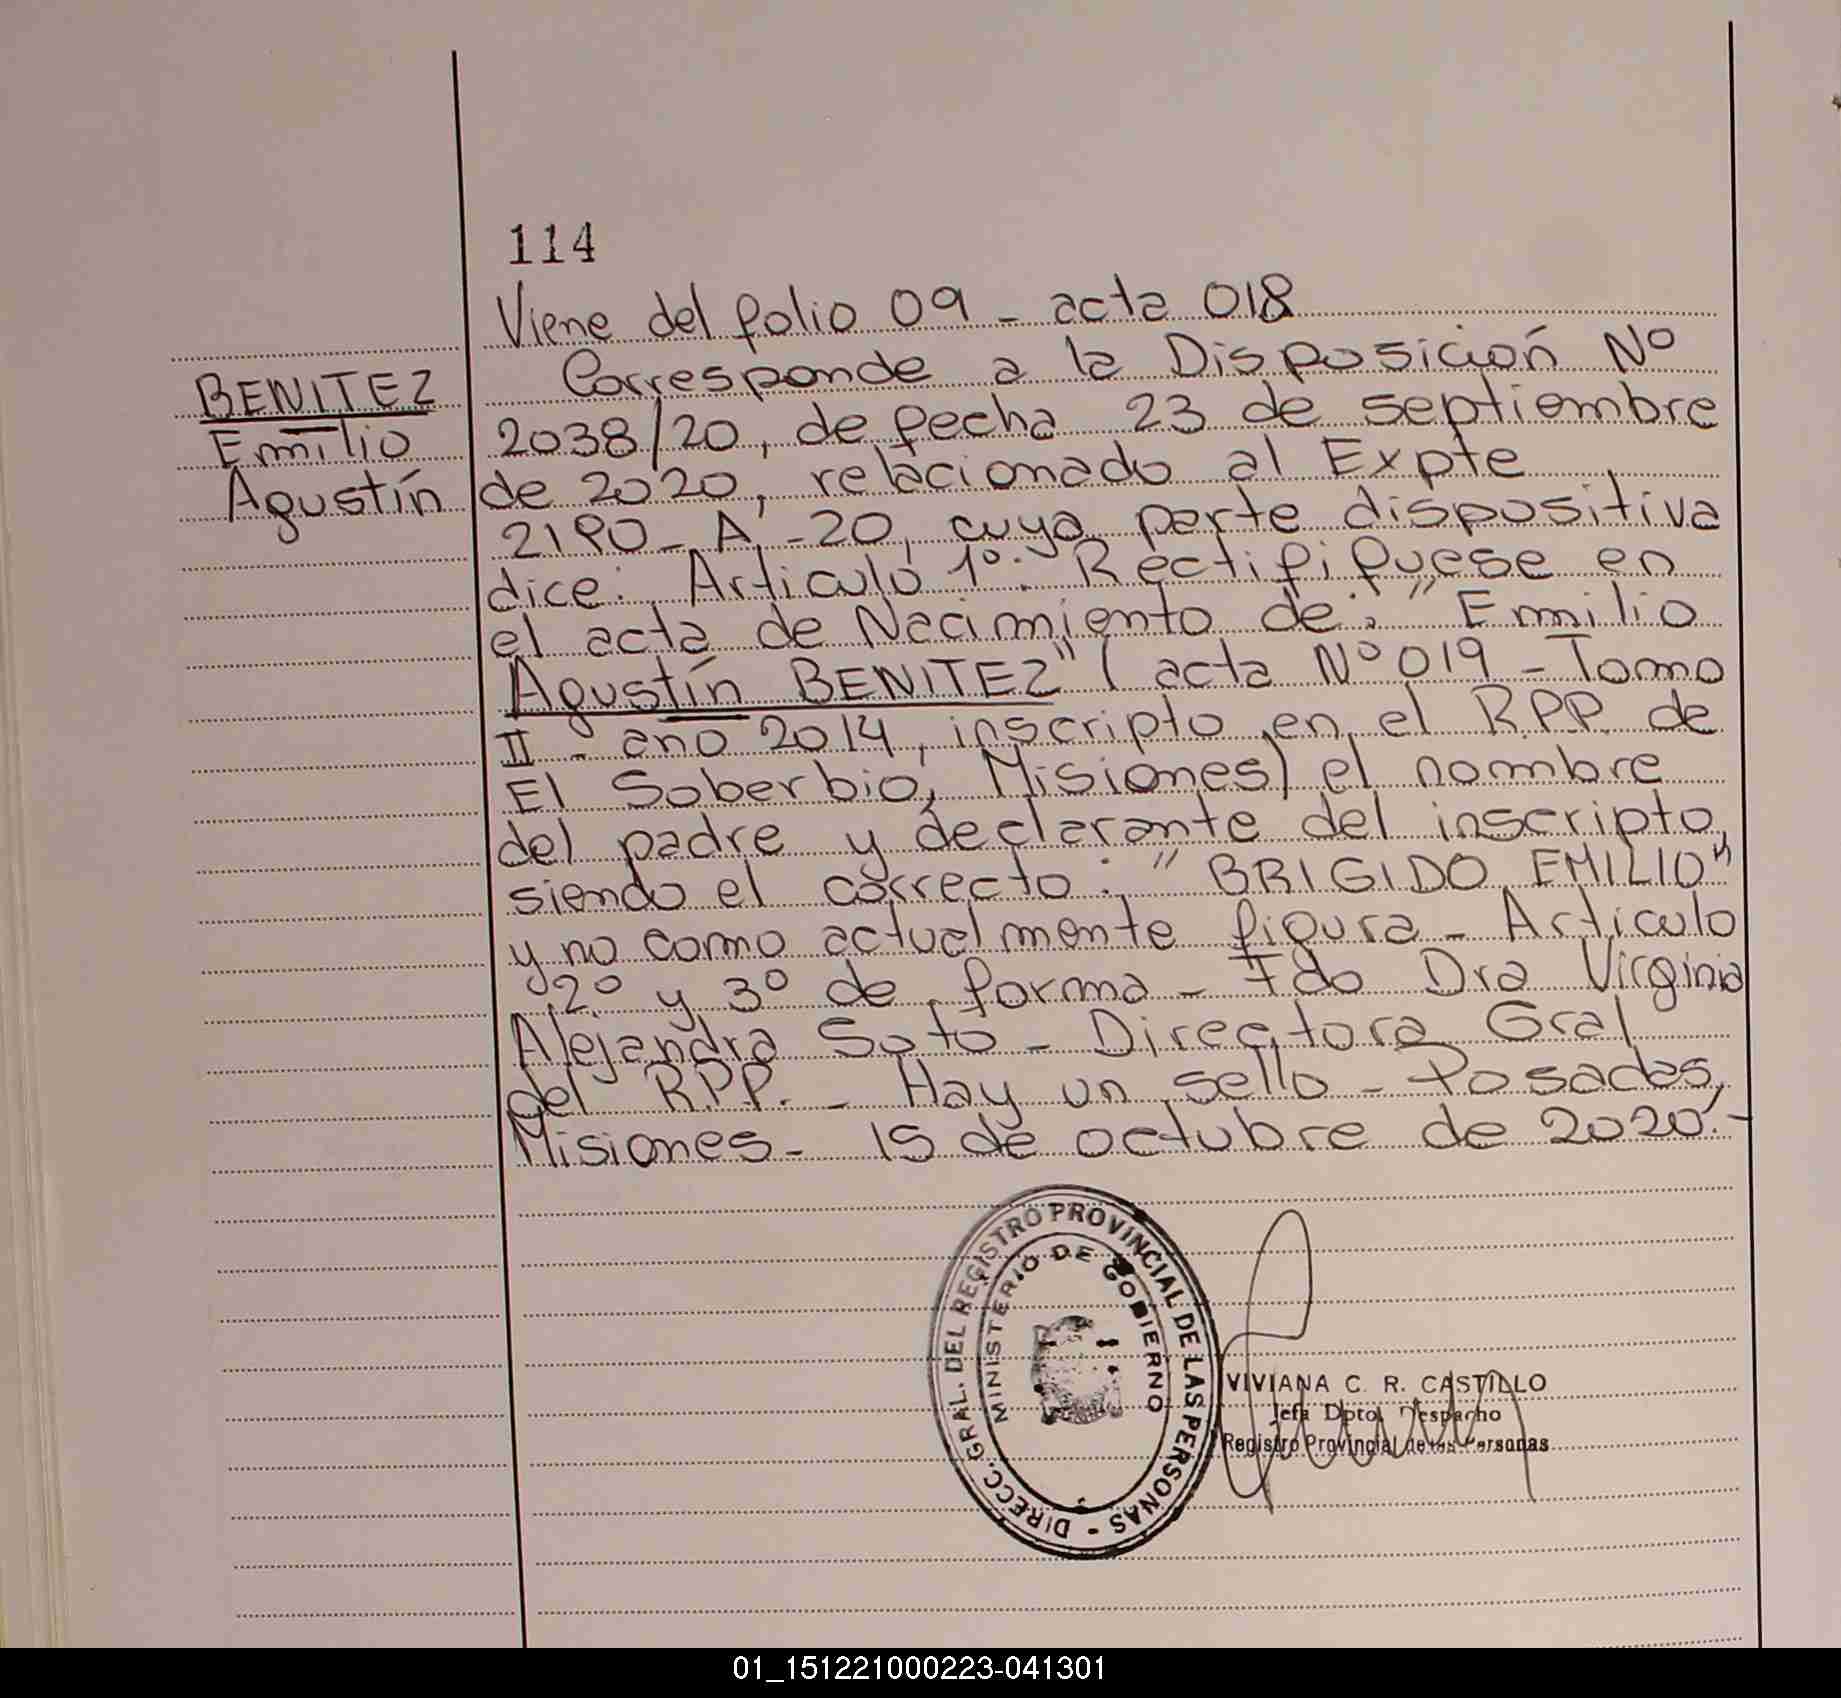 114
Viene del folio 09 - acta 018
BENITEZ
Emilio
Agustín
Corresponde a la Disposición Nº
2038/20, de fecha 23 de septiembre
de 2020, relacionado al Expte
2190 - A - 20, cuya parte dispositiva
dice: Artículo 1º: Rectifíquese en
el acta de Nacimiento de: "Emilio
Agustín BENITEZ" (acta Nº 019 - Tomo
II - año 2014, inscripto en el R.P.P. de
El Soberbio, Misiones) el nombre
del padre y declarante del inscripto,
siendo el correcto: "BRIGIDO EMILIO"
y no como actualmente figura - Artículo
2º y 3º de forma - Fdo Dra Virginia
Alejandra Soto - Directora Gral
del R.P.P. - Hay un sello - Posadas,
Misiones - 15 de octubre de 2020.-
DIRECC. GRAL. DEL REGISTRO PROVINCIAL DE LAS PERSONAS -
MINISTERIO DE GOBIERNO
VIVIANA C. R. CASTILLO
Jefa Dpto. Despacho
Registro Provincial de las Personas
01_151221000223-041301